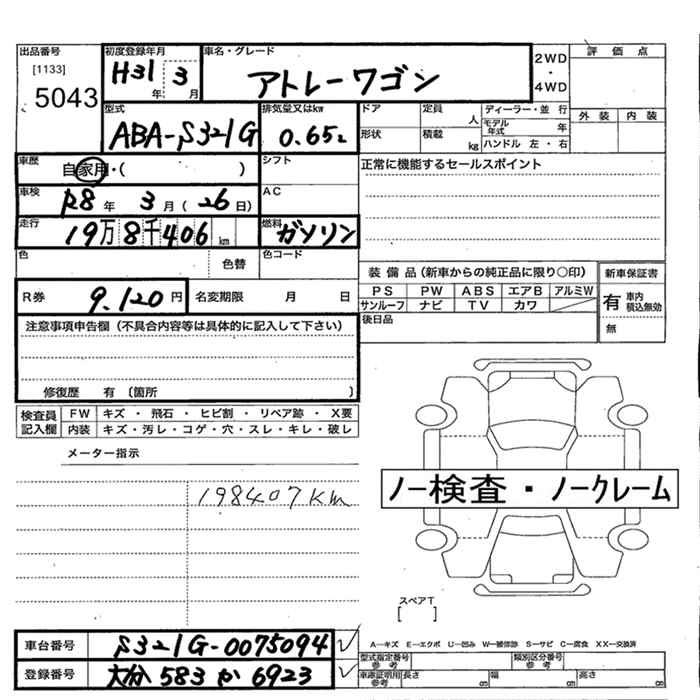 出品番号
[1133]
5043
初度登録年月
H31 年 3 月
車名・グレード
アトレーワゴン
2WD
・
4WD
評価点
外装 内装
型式
ABA-S321G
排気量又はkw
0.65L
ドア 定員 人
形状 積載 kg
ディーラー・並行
モデル年式 年
ハンドル 左・右
車歴
自家用・( )
シフト
正常に機能するセールスポイント
車検
R8年 3月(26日)
AC
走行
19万8千406km
燃料
ガソリン
色 色替
色コード
装備品(新車からの純正品に限り○印)
PS PW ABS エアB アルミW
サンルーフ ナビ TV カワ
新車保証書
有 車内積込無効
無
R券 9.120円
名変期限 月 日
後日品
注意事項申告欄(不具合内容等は具体的に記入して下さい)
修復歴 有〔箇所 〕
検査員記入欄
FW キズ・飛石・ヒビ割・リペア跡・X要
内装 キズ・汚レ・コゲ・穴・スレ・キレ・破レ
メーター指示
198407km
ノー検査・ノークレーム
スペアT
[ ]
車台番号 S321G-0075094
登録番号 大分 583 か 6923
A―キズ E―エクボ U―凹み W―補修跡 S―サビ C―腐食 XX―交換済
型式指定番号 参考
類別区分番号 参考
車庫証明用 参考
長さ cm 幅 cm 高さ cm